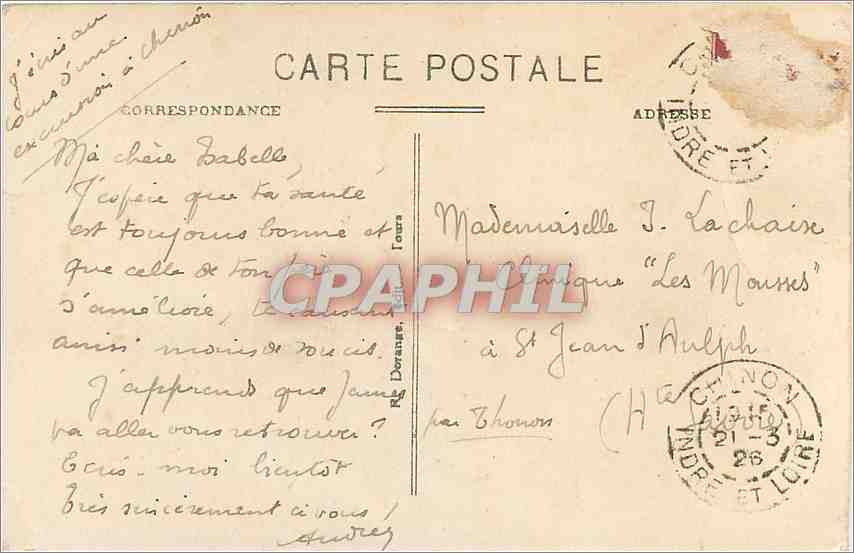 J'écris au
cours d'une
excursion à Chinon
CARTE POSTALE
CORRESPONDANCE
ADRESSE
INDRE ET
Ma chère Isabelle,
J'espère que ta santé
est toujours bonne et
que celle de ton
s'améliore, te causant
ainsi moins de soucis.
J'apprends que James
va aller vous retrouver?
Ecris-moi bientôt
Très sincèrement à vous!
Audrey
R. Dorange, édit. Tours
CPAPHIL
Mademoiselle I. Lachaise
Clinique "Les Mousses"
à St Jean d'Aulph
par Thonon
(Hte Savoie)
CHINON
21-3
26
INDRE ET LOIRE